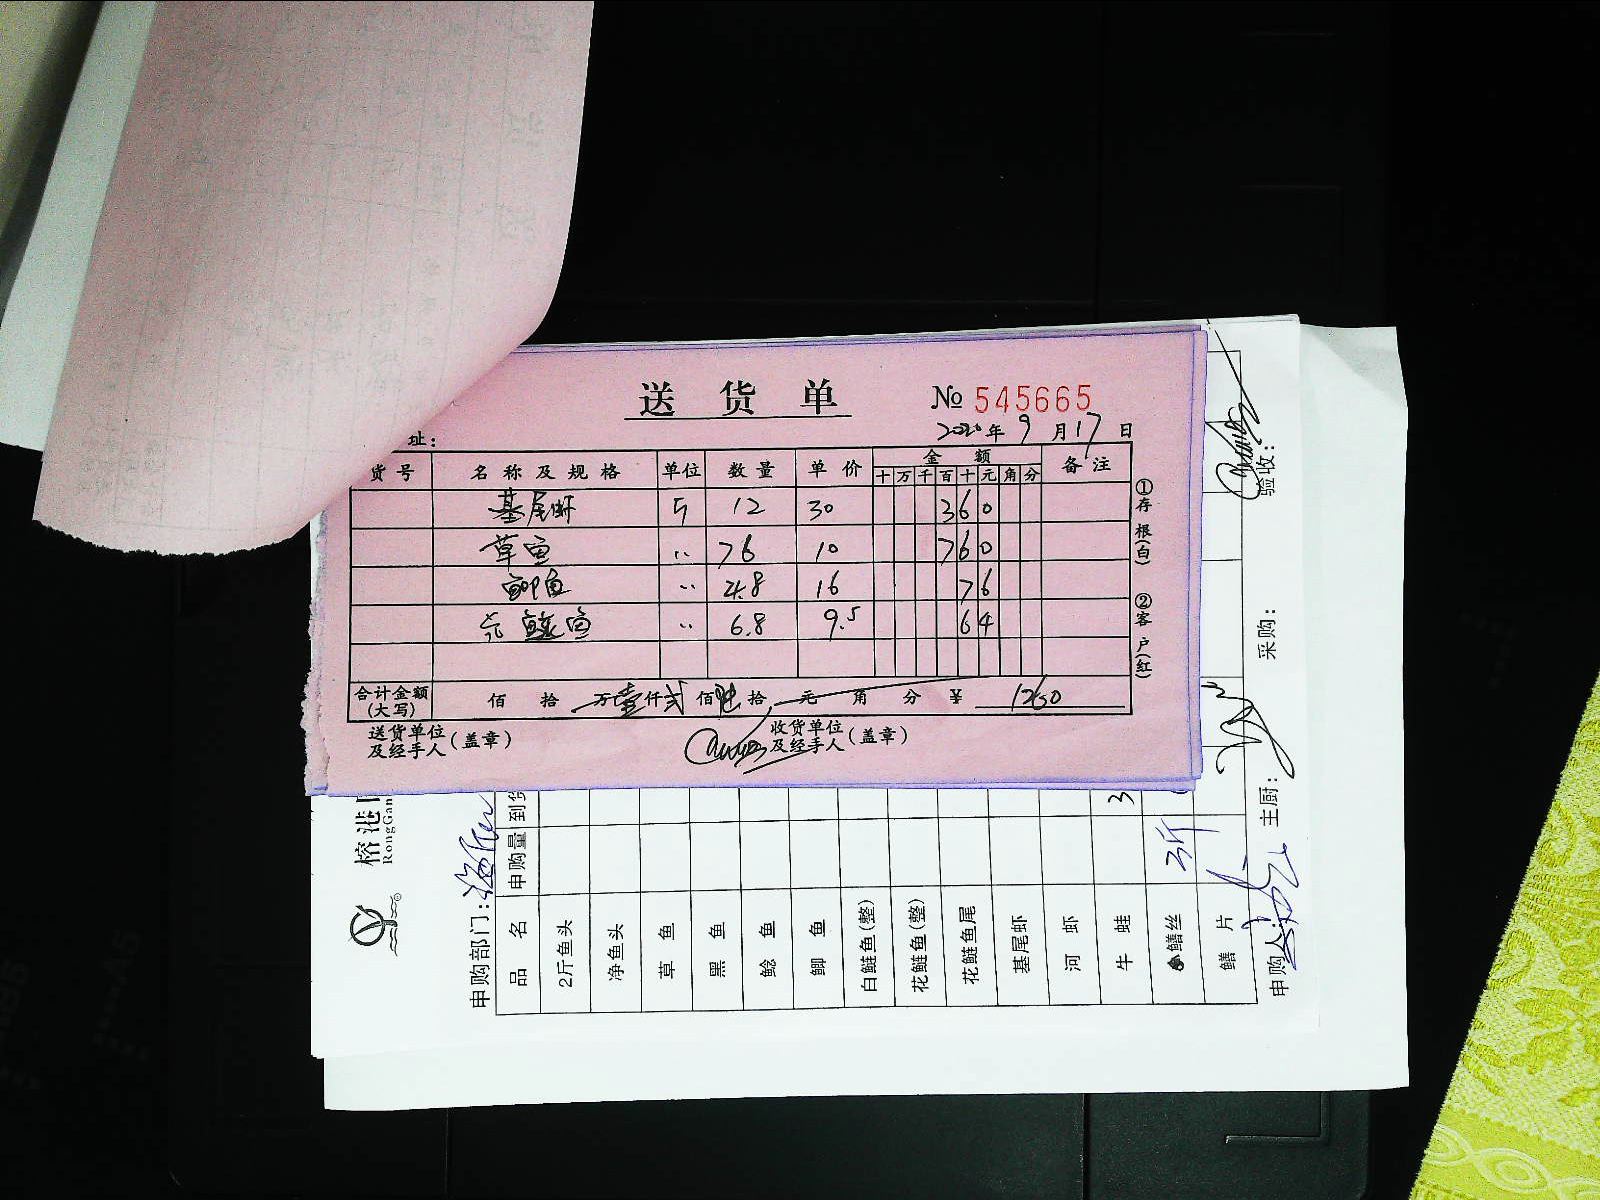 送 货 单
№ 545665
址：
2020年 9月17日
货号 名称及规格 单位 数量 单价 金额 备注
十 万 千 百 十 元 角 分
基尾虾 斤 12 30 360
草鱼 〃 76 10 760
鲫鱼 〃 4.8 16 76
6.8 9.5 64
合计金额(大写) 佰 拾 万 壹仟 弐佰 陆拾 元 角 分 ¥ 1260
送货单位及经手人(盖章)
收货单位及经手人(盖章)
①存根(白)
②客户(红)
榕港
RongGan
申购部门：
品 名 申购量 到货
2斤鱼头
净鱼头
草 鱼
黑 鱼
鲶 鱼
鲫 鱼
白鲢鱼(整)
花鲢鱼(整)
花鲢鱼尾
基尾虾
河 虾
牛 蛙 3
鳝丝 3斤
鳝 片
申购人：
主厨：
采购：
验收：